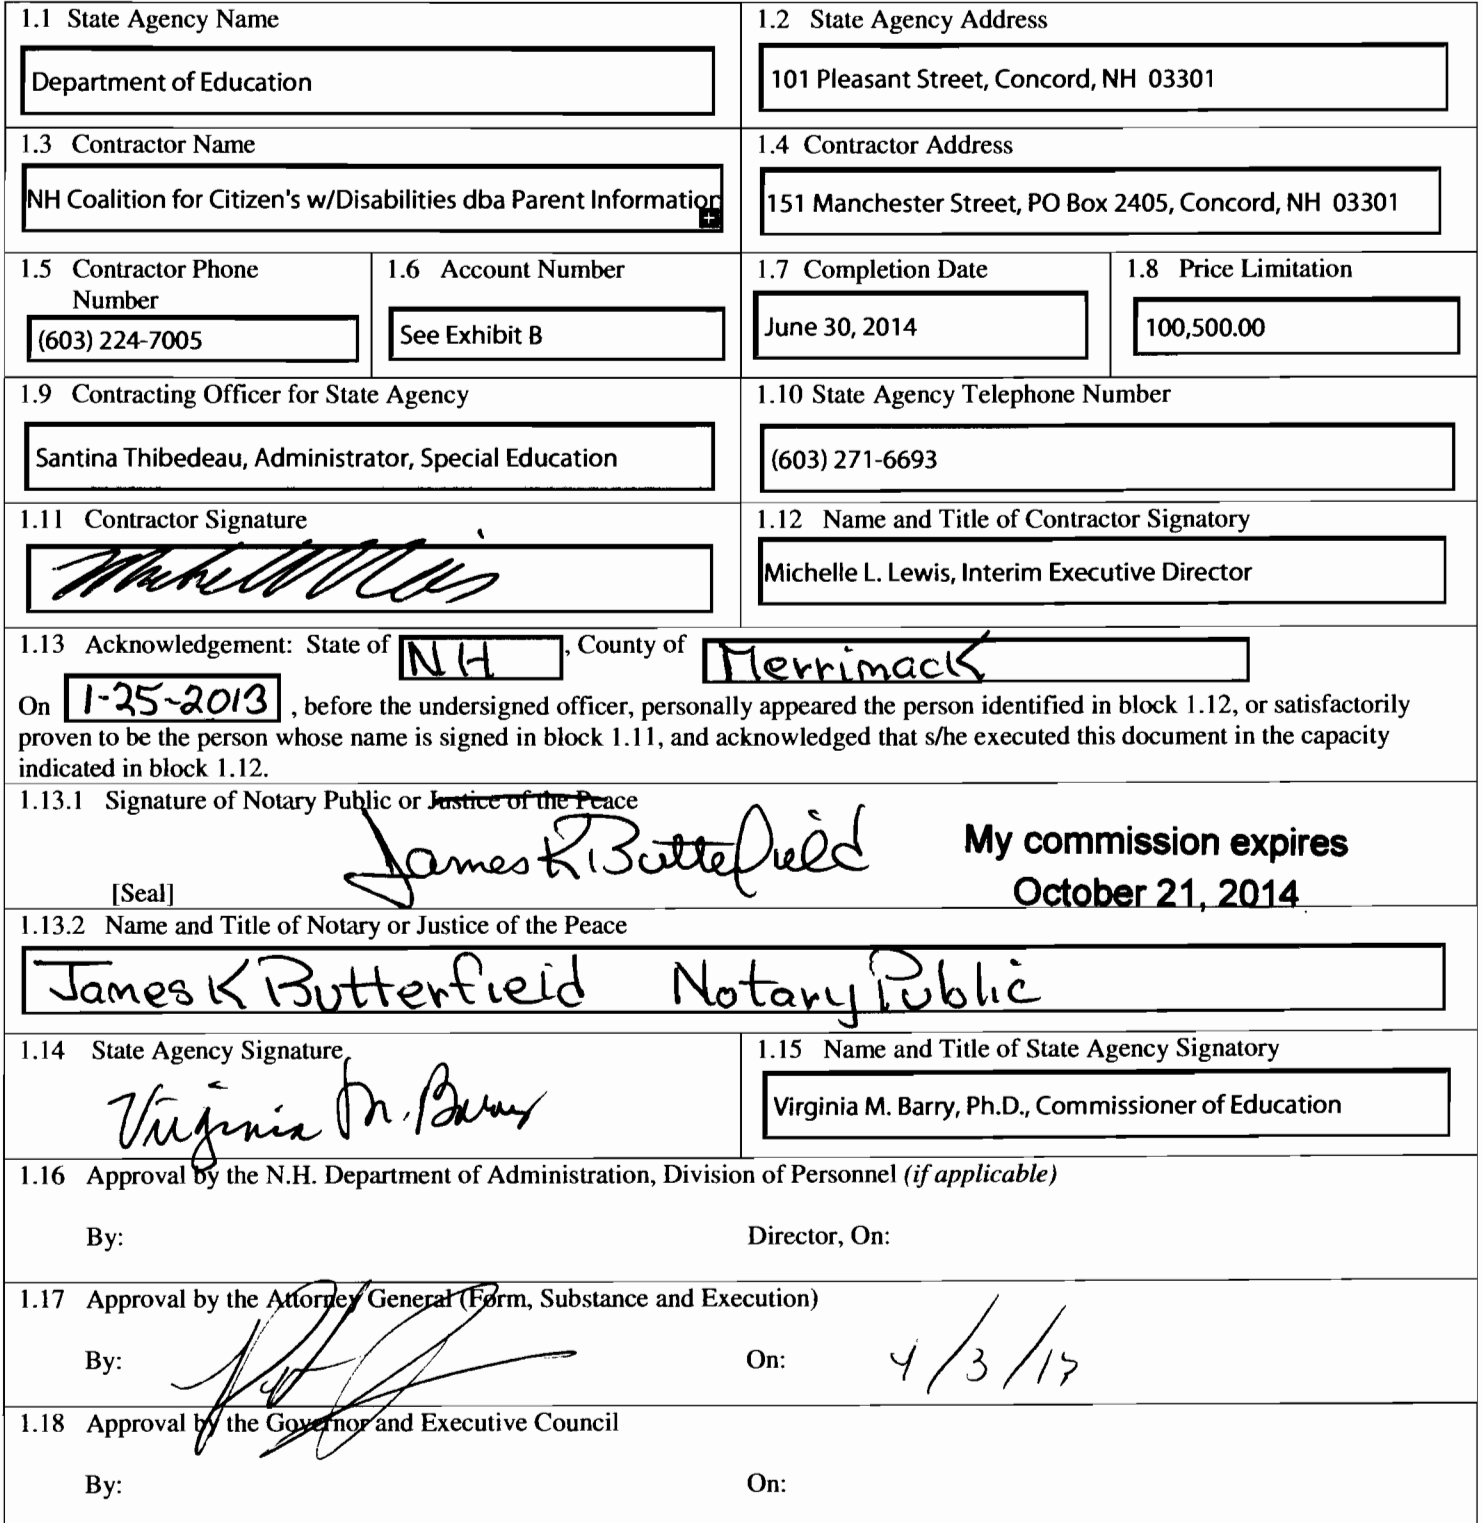 1.1 State Agency Name
Department of Education
1.2 State Agency Address
101 Pleasant Street, Concord, NH 03301
1.3 Contractor Name
NH Coalition for Citizen's w/Disabilities dba Parent Information
1.4 Contractor Address
151 Manchester Street, PO Box 2405, Concord, NH 03301
1.5 Contractor Phone
Number
(603) 224-7005
1.6 Account Number
See Exhibit B
1.7 Completion Date
June 30, 2014
1.8 Price Limitation
100,500.00
1.9 Contracting Officer for State Agency
Santina Thibedeau, Administrator, Special Education
1.10 State Agency Telephone Number
(603) 271-6693
1.11 Contractor Signature
1.12 Name and Title of Contractor Signatory
Michelle L. Lewis, Interim Executive Director
1.13 Acknowledgement: State of NH, County of Merrimack
On 1-25-2013, before the undersigned officer, personally appeared the person identified in block 1.12, or satisfactorily
proven to be the person whose name is signed in block 1.11, and acknowledged that s/he executed this document in the capacity
indicated in block 1.12.
1.13.1 Signature of Notary Public or Justice of the Peace
James K Butterfield
My commission expires
October 21, 2014
[Seal]
1.13.2 Name and Title of Notary or Justice of the Peace
James K Butterfield Notary Public
1.14 State Agency Signature
Virginia M. Barry
1.15 Name and Title of State Agency Signatory
Virginia M. Barry, Ph.D., Commissioner of Education
1.16 Approval by the N.H. Department of Administration, Division of Personnel (if applicable)
By: Director, On:
1.17 Approval by the Attorney General (Form, Substance and Execution)
By: On: 4/3/13
1.18 Approval by the Governor and Executive Council
By: On: